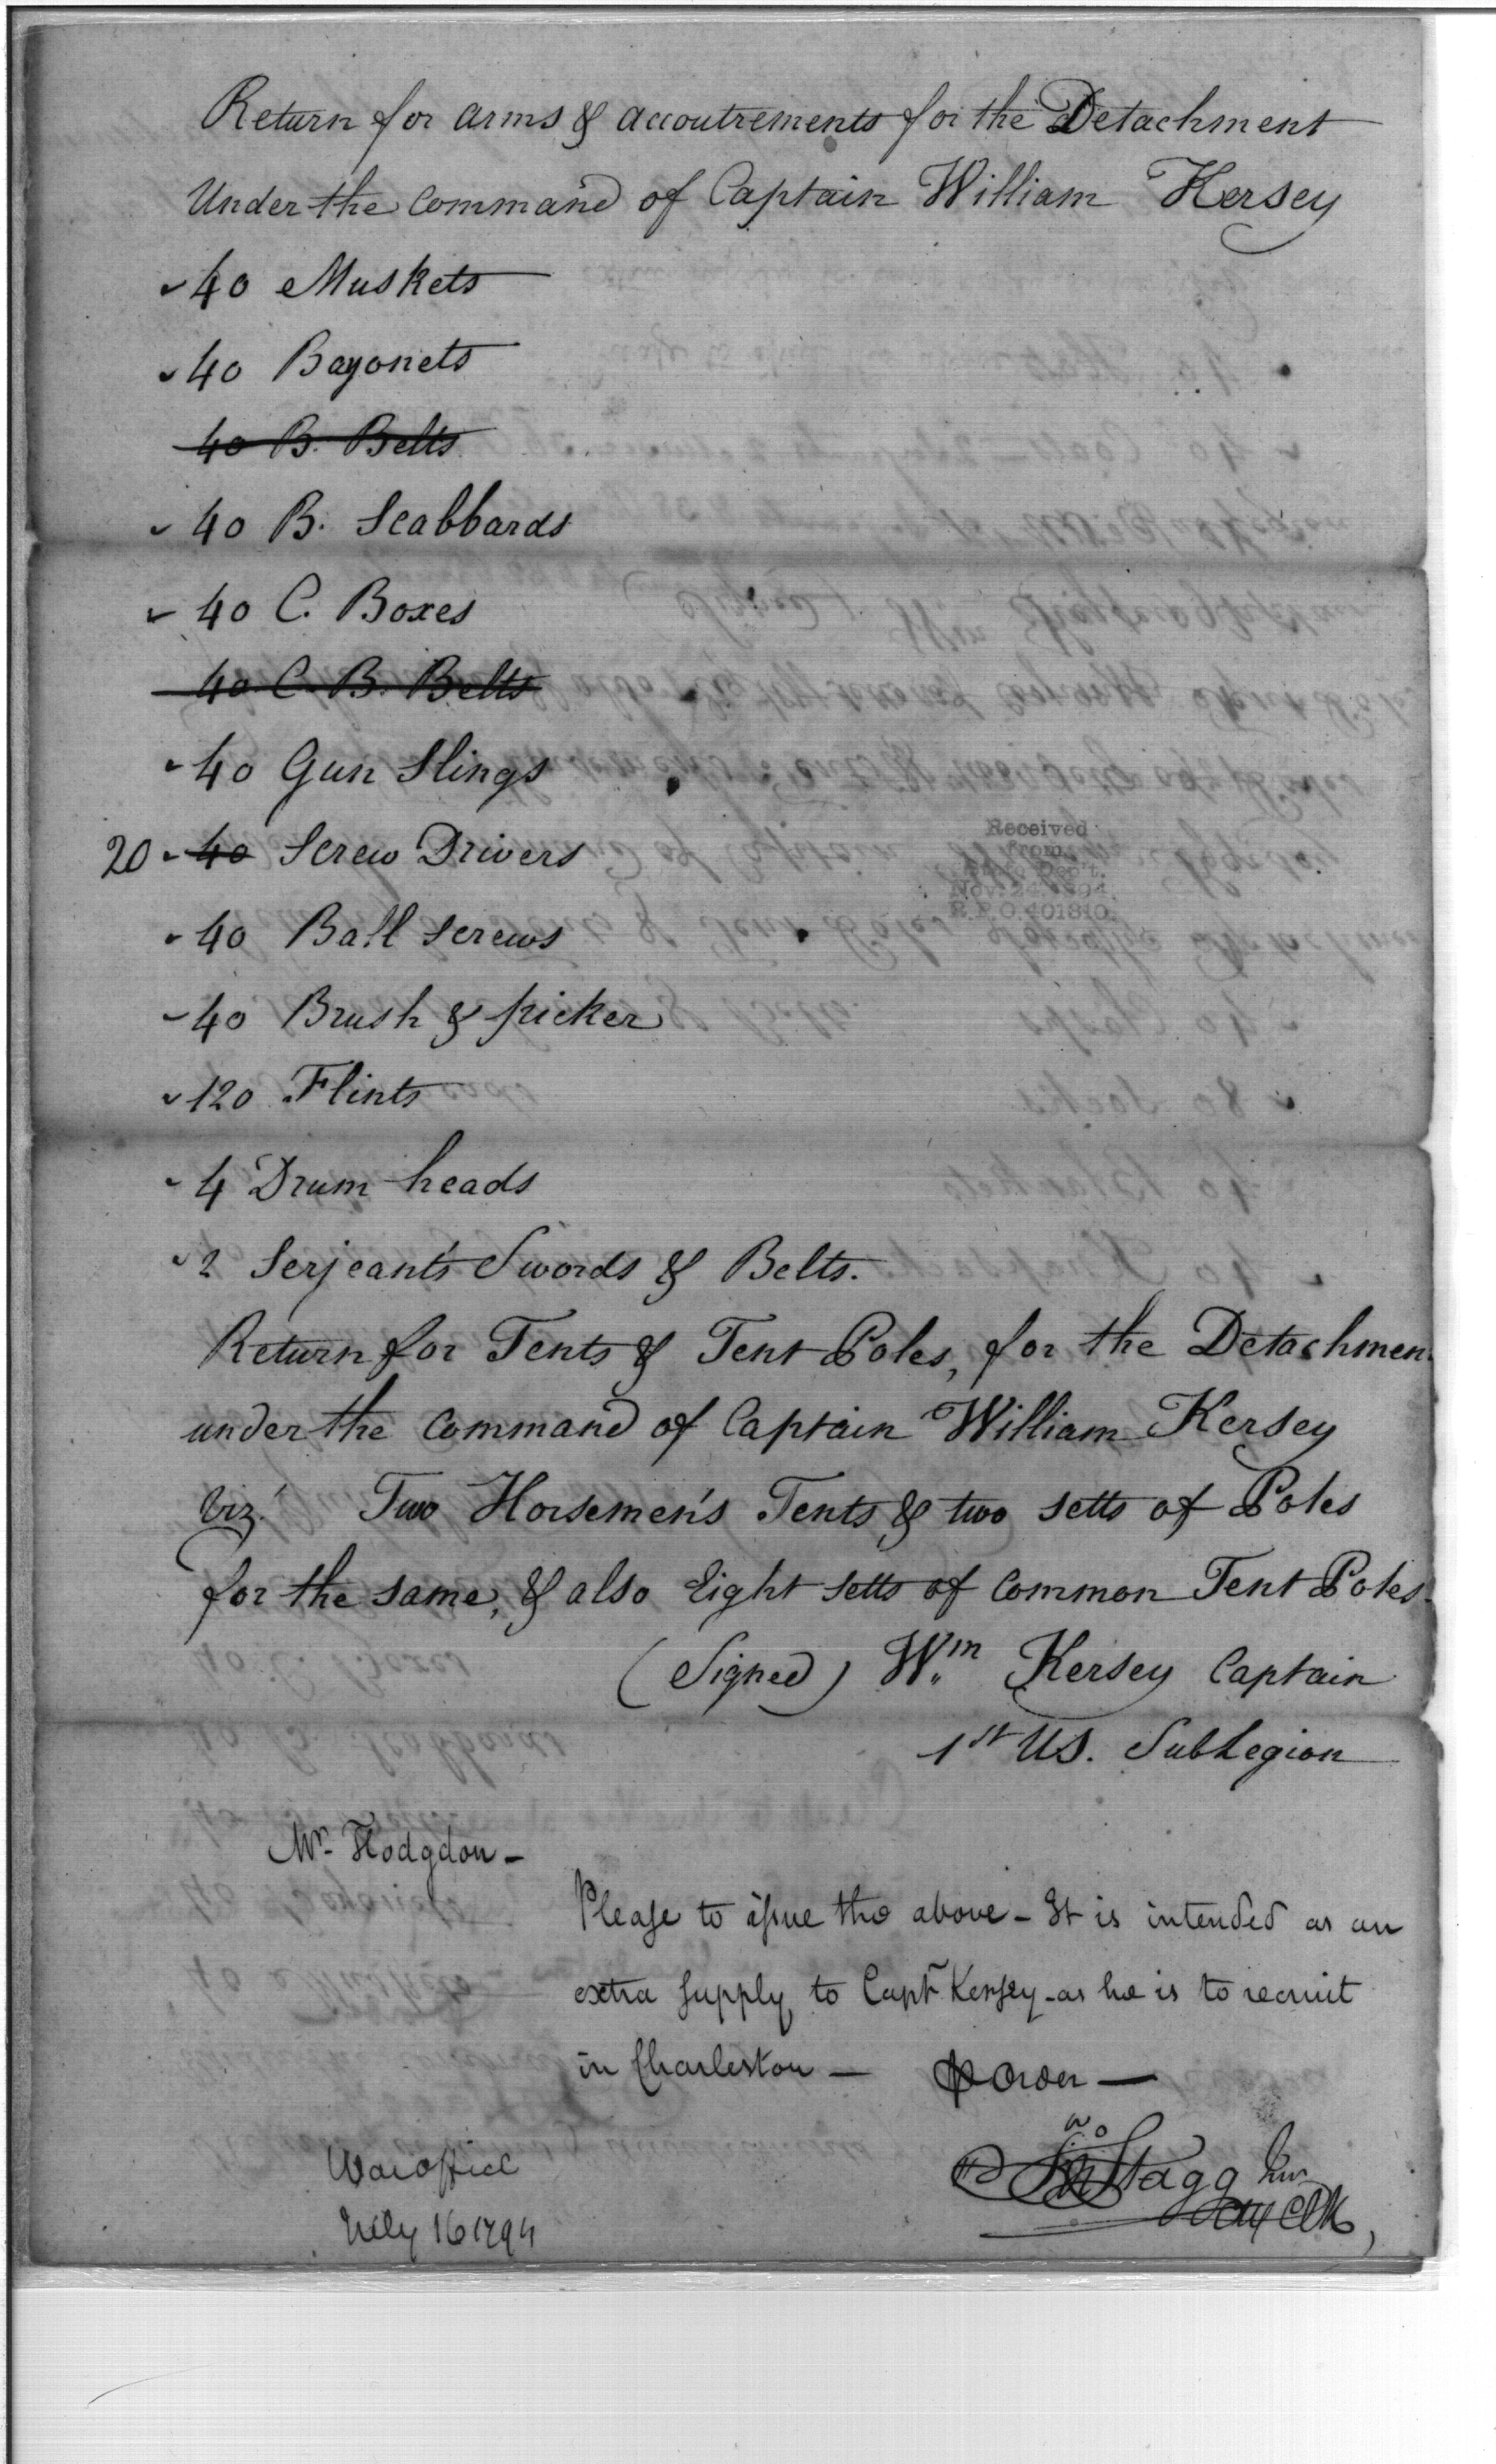 Return for arms & accoutrements for the Detachment
Under the command of Captain William Kersey
40 Muskets
40 Bayonets
40 B. Belts
40 B. Scabbards
40 C. Boxes
40 C. B. Belts
40 Gun Slings
20 40 Screw Drivers
Received
from
State Dep't.
Nov. 24, 1894
R.P.O. 401810.
40 Ball screws
40 Brush & picker
120 Flints
4 Drum heads
2 Serjeant's Swords & Belts.
Return for Tents & Tent Poles, for the Detachmen
under the command of Captain William Kersey
Viz.t Two Horsemen's Tents & two setts of Poles
for the same, & also Eight setts of common Tent Poles.
(Signed) Wm Kersey Captain
1st US. SubLegion
Mr. Hodgdon -
Please to issue the above - It is intended as an
extra supply to Capt Kersey - as he is to recruit
in Charleston — Order —
Jno Stagg Junr
War office
July 16 1794